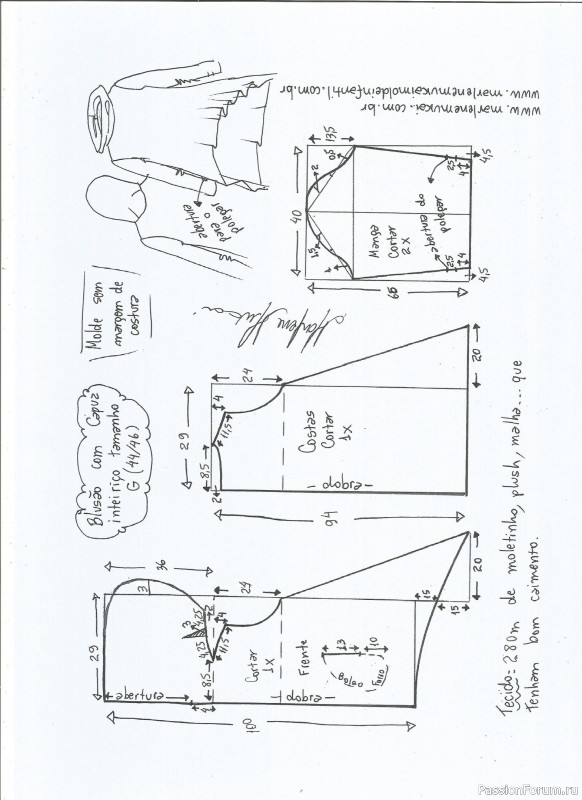 www.marlenemukai.com.br
www.marlenemukaimoldeinfantil.com.br
abertura
para o
polegar
Molde sem
margem de
costura
Marlene Mukai
Blusão com Capuz
inteiriço tamanho
G (44/46)
40
13,5
2
0,5
1,5
1
Manga
Cortar
2X
abertura do
polegar
2,5
4
4,5
2,5
4
4,5
65
29
24
4
8,5
11,5
2
Costas
Cortar
1X
dobra
94
20
36
3
29
24
3
4,25
4,25
2
4
8,5
11,5
entrada
4
Cortar
1X
Frente
13
10
bolso
Forro
dobra
100
15
15
20
Tecido= 2,80m de moletinho, plush, malha... que
Tenham bom caimento.
PassionForum.ru